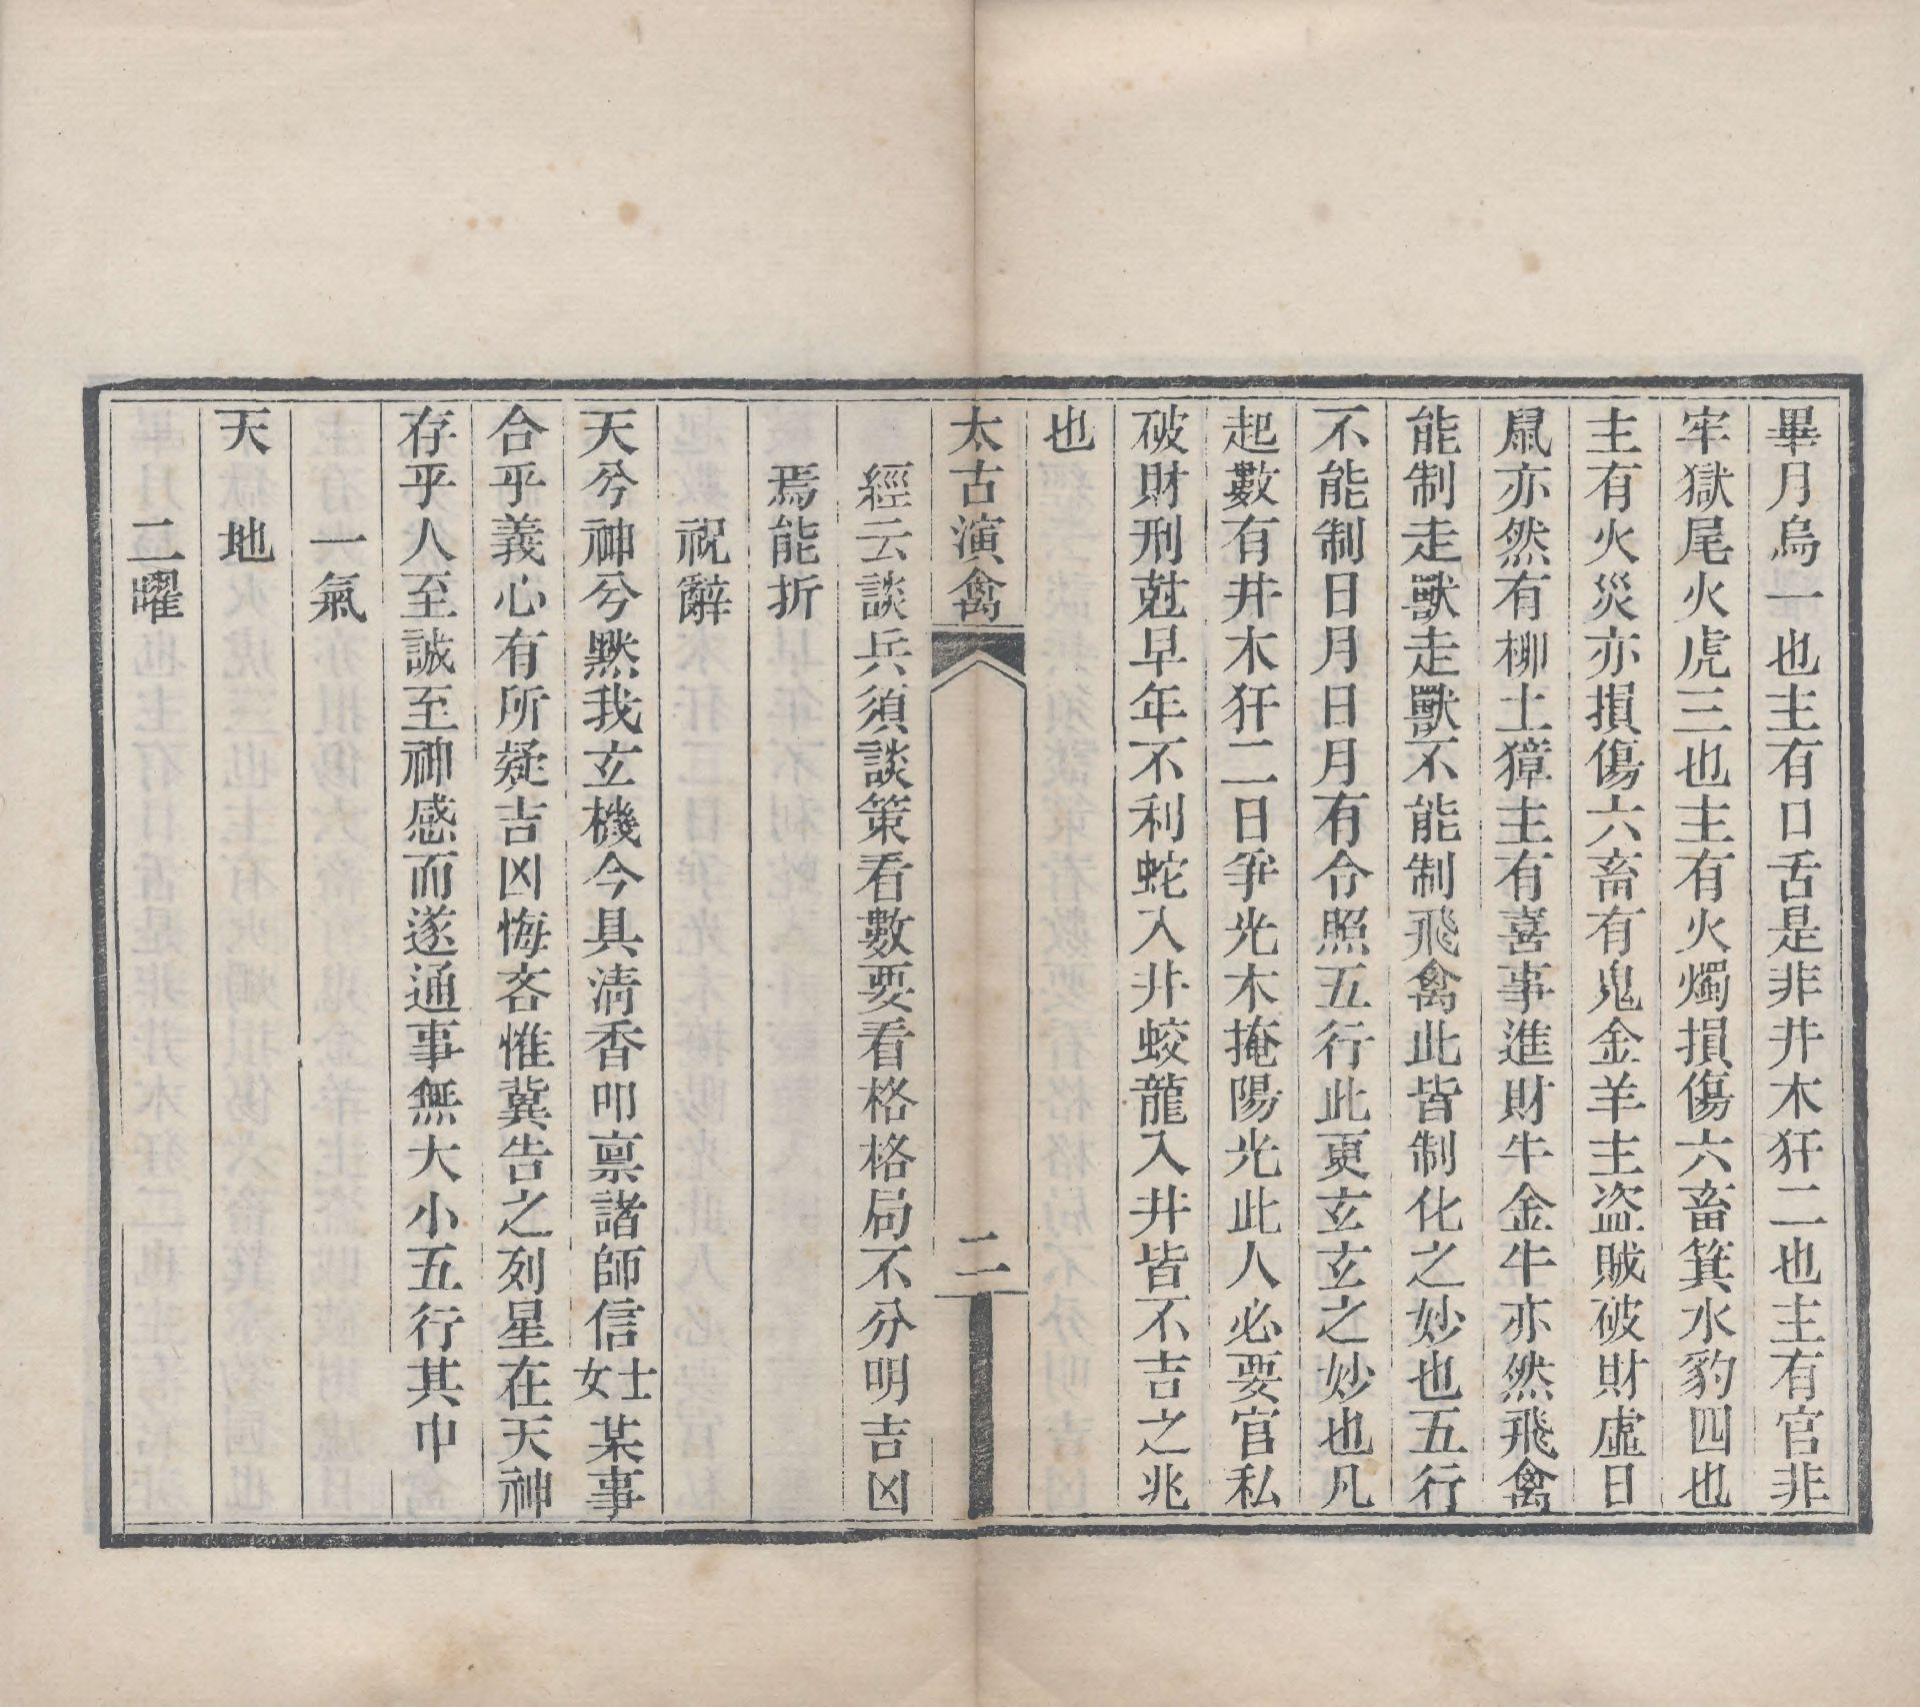 畢月烏一也主有口舌是非井木犴二也主有官非
牢獄尾火虎三也主有火燭損傷六畜箕水豹四也
主有火災亦損傷六畜有鬼金羊主盜賊破財虛日
鼠亦然有柳土獐主有喜事進財牛金牛亦然飛禽
能制走獸走獸不能制飛禽此皆制化之妙也五行
不能制日月日月有令照五行此更玄玄之妙也凡
起數有井木犴二日爭光木掩陽光此人必要官私
破財刑尅早年不利蛇入井蛟龍入井皆不吉之兆
也
太古演禽 二
經云談兵須談策看數要看格格局不分明吉凶
焉能折
祝辭
天兮神兮默我玄機今具清香叩禀諸師信士女某事
合乎義心有所疑吉凶悔吝惟冀告之列星在天神
存乎人至誠至神感而遂通事無大小五行其中
一氣
天地
二曜